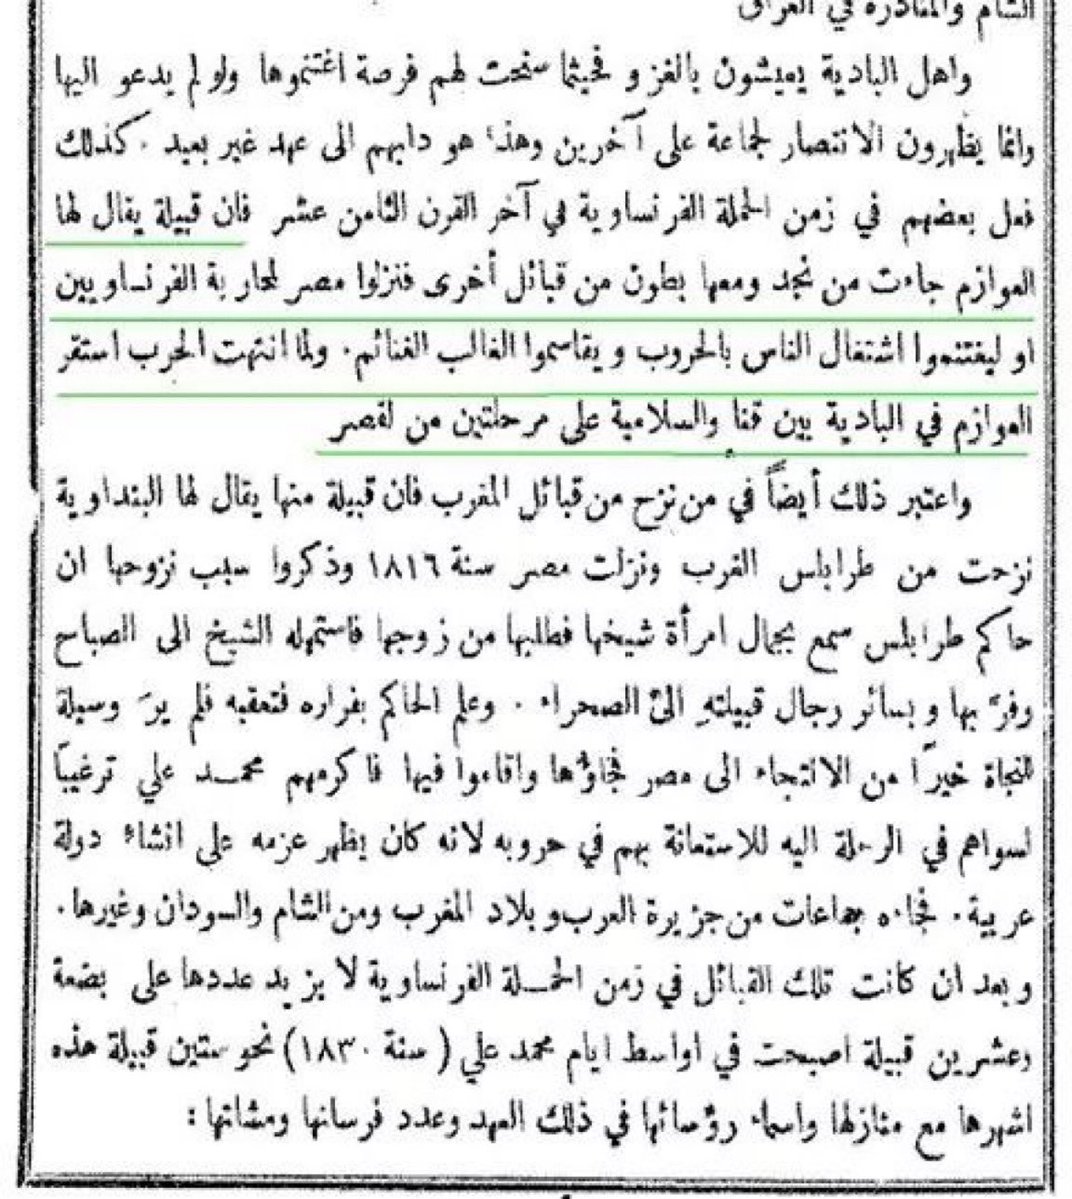 الشام والمناذرة في العراق
واهل البادية يعيشون بالغزو فحيثما سنحت لهم فرصة اغتنموها ولو لم يدعو اليها
وانما يظهرون الانتصار لجماعة على آخرين وهذا هو دابهم الى عهد غير بعيد . كذلك
فعل بعضهم في زمن الحملة الفرنساوية في آخر القرن الثامن عشر فان قبيلة يقال لها
العوازم جاءت من نجد ومعها بطون من قبائل أخرى فنزلوا مصر لمحاربة الفرنساويين
او ليغتنموا اشتغال الناس بالحروب ويقاسموا الغالب الغنائم . ولما انتهت الحرب استقر
العوازم في البادية بين قنا والسلامية على مرحلتين من لقصر
واعتبر ذلك أيضاً في من نزح من قبائل المغرب فان قبيلة منها يقال لها البنداوية
نزحت من طرابلس الغرب ونزلت مصر سنة ١٨١٦ وذكروا سبب نزوحها ان
حاكم طرابلس سمع بجمال امرأة شيخها فطلبها من زوجها فاستمهله الشيخ الى الصباح
وفرَّ بها وبسائر رجال قبيلتهِ الى الصحراء . وعلم الحاكم بفراره فتعقبه فلم يرَ وسيلة
للنجاة خيرًا من الالتجاء الى مصر فجاؤها واقاموا فيها فاكرمهم محمد علي ترغيبًا
لسواهم في الرحلة اليه للاستعانة بهم في حروبه لانه كان يظهر عزمه على انشاء دولة
عربية . فجاءه جماعات من جزيرة العرب وبلاد المغرب ومن الشام والسودان وغيرها .
وبعد ان كانت تلك القبائل في زمن الحملة الفرنساوية لا يزيد عددها على بضعة
وعشرين قبيلة اصبحت في اواسط ايام محمد علي ( سنة ١٨٣٠ ) نحو ستين قبيلة هذه
اشهرها مع منازلها واسماء رؤسائها في ذلك العهد وعدد فرسانها ومشاتها :